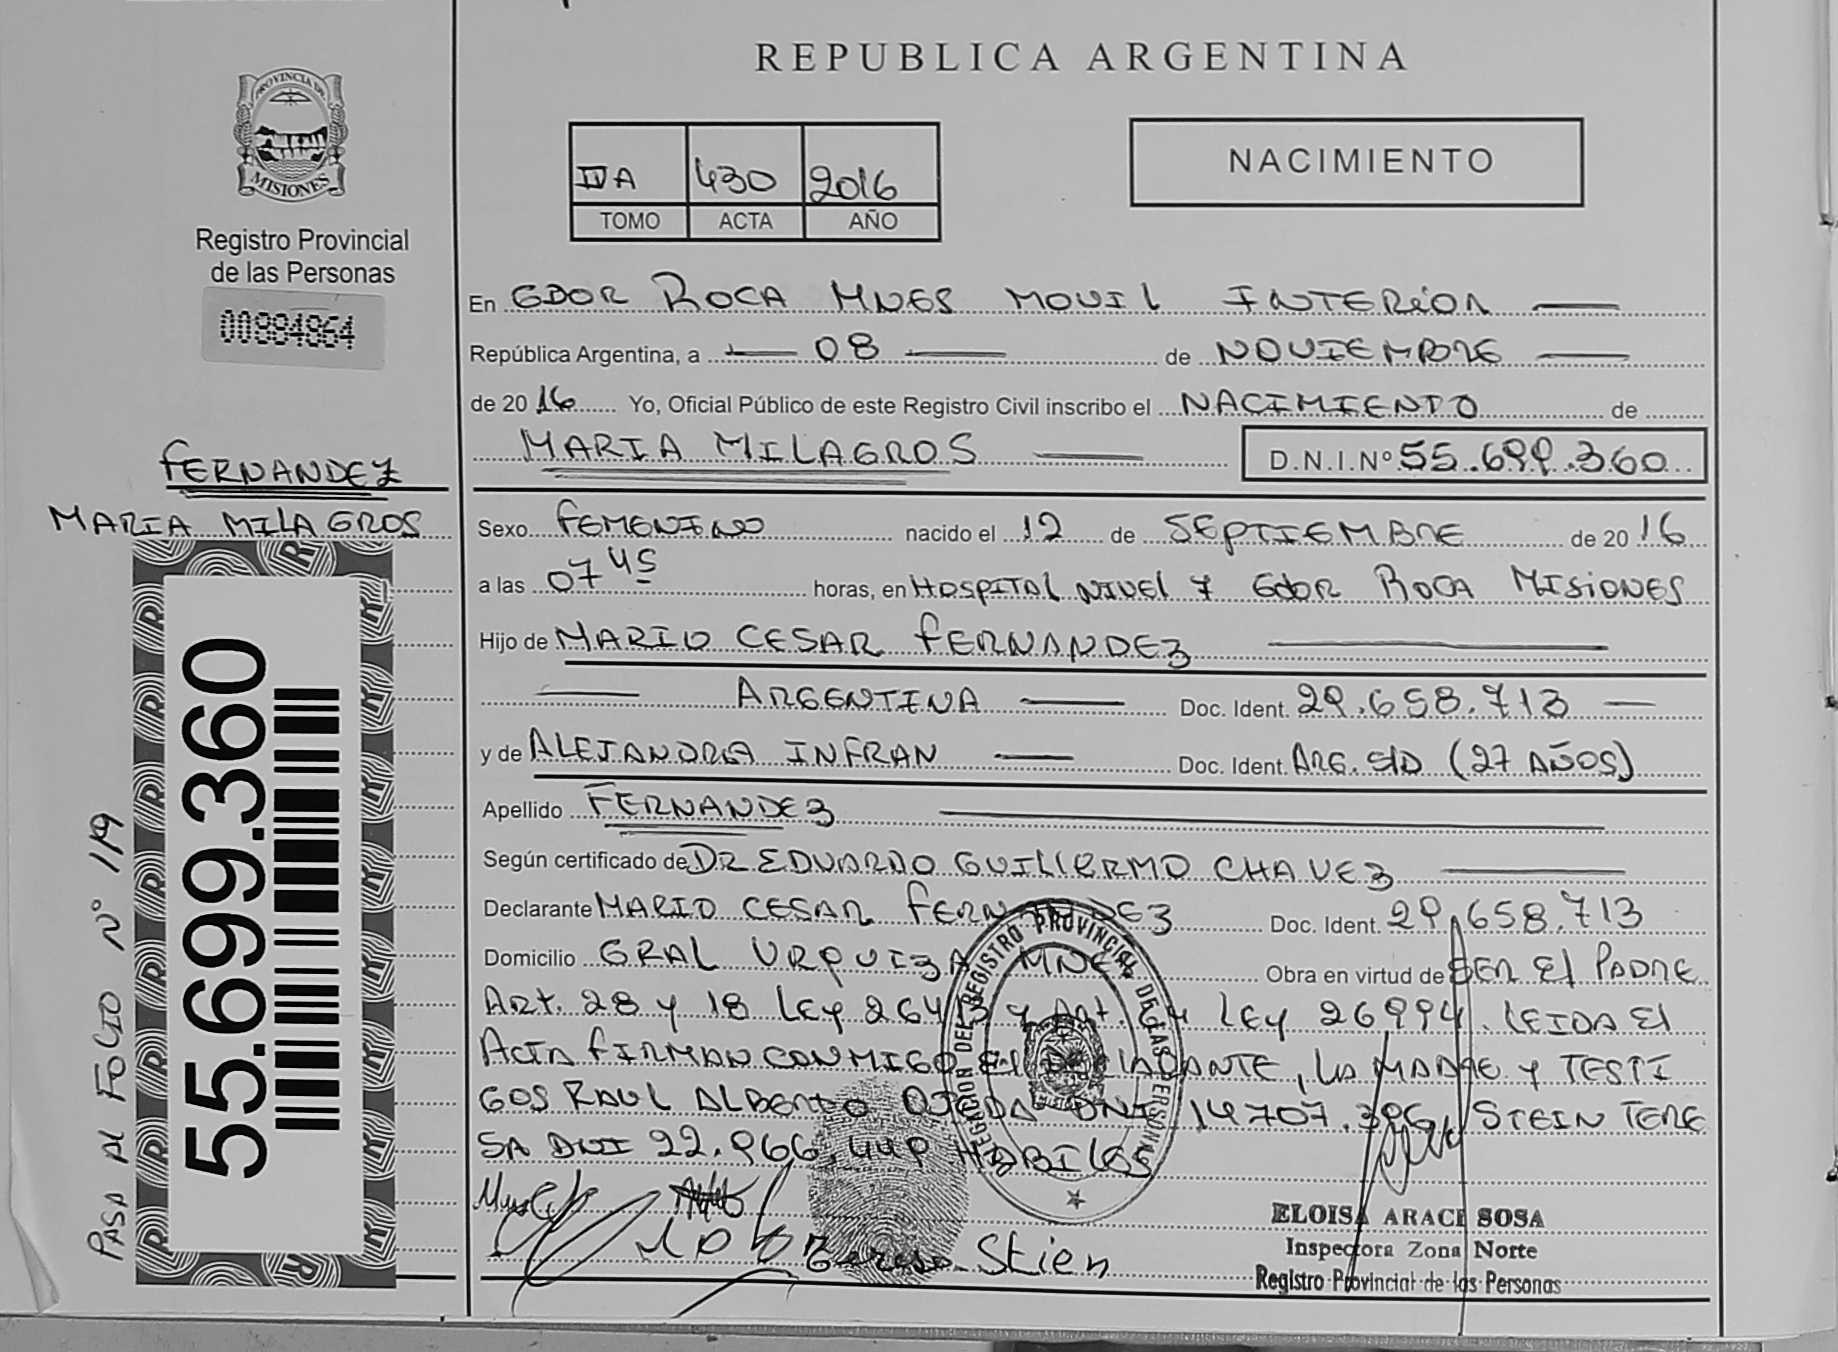 REPUBLICA ARGENTINA
PROVINCIA DE
MISIONES
Registro Provincial
de las Personas
00884864
IIA 430 2016
TOMO ACTA AÑO
NACIMIENTO
En GDOR ROCA MNES MOVIL INTERIOR
República Argentina, a 08 de NOVIEMBRE
de 20 16 Yo, Oficial Público de este Registro Civil inscribo el NACIMIENTO de
MARIA MILAGROS D.N.I.Nº 55.699.360
FERNANDEZ
MARIA MILAGROS
55.699.360
PASA AL FOLIO Nº 119
Sexo FEMENINO nacido el 12 de SEPTIEMBRE de 20 16
a las 07 45 horas, en HOSPITAL NIVEL 1 Gdor ROCA MISIONES
Hijo de MARIO CESAR FERNANDEZ
ARGENTINA Doc. Ident. 29.658.713
y de ALEJANDRA INFRAN Doc. Ident. ARG. S/D (27 AÑOS)
Apellido FERNANDEZ
Según certificado de DR EDUARDO GUILLERMO CHAVEZ
Declarante MARIO CESAR FERNANDEZ Doc. Ident. 29.658.713
Domicilio GRAL URQUIZA MNES Obra en virtud de SER El PADRE
Art. 28 y 18 Ley 26413 y Art. Ley 26994. LEIDA El
Acta FIRMAN CONMIGO El DECLARANTE, LA MADRE y TESTI
GOS RAUL ALBERTO OJEDA DNI 14707.396, STEIN TERE
SA DNI 22.966.449 HABILES
Teresa Stien
DELEGACION DEL REGISTRO PROVINCIAL DE LAS PERSONAS
MISIONES
ELOISA ARACI SOSA
Inspectora Zona Norte
Registro Provincial de las Personas